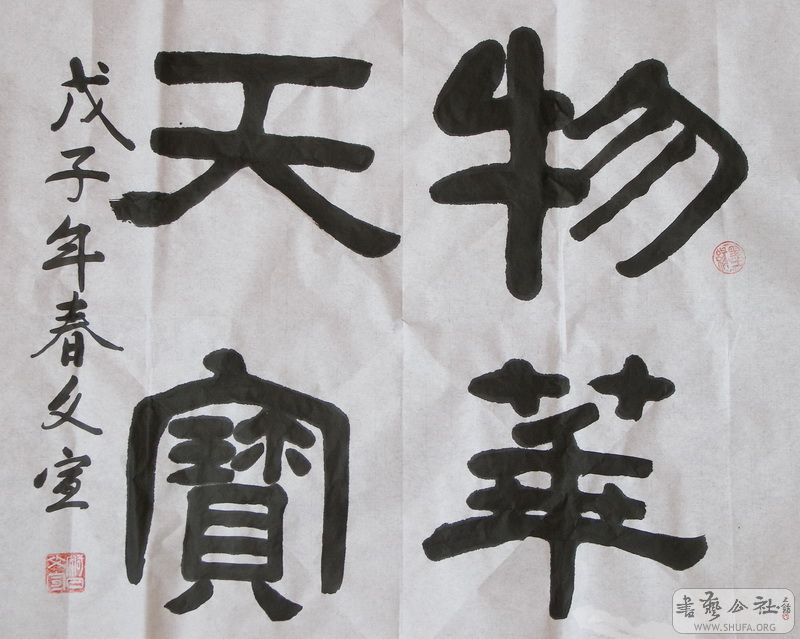 物華
天寶
戊子年春文宣
書藝公社
WWW.SHUFA.ORG